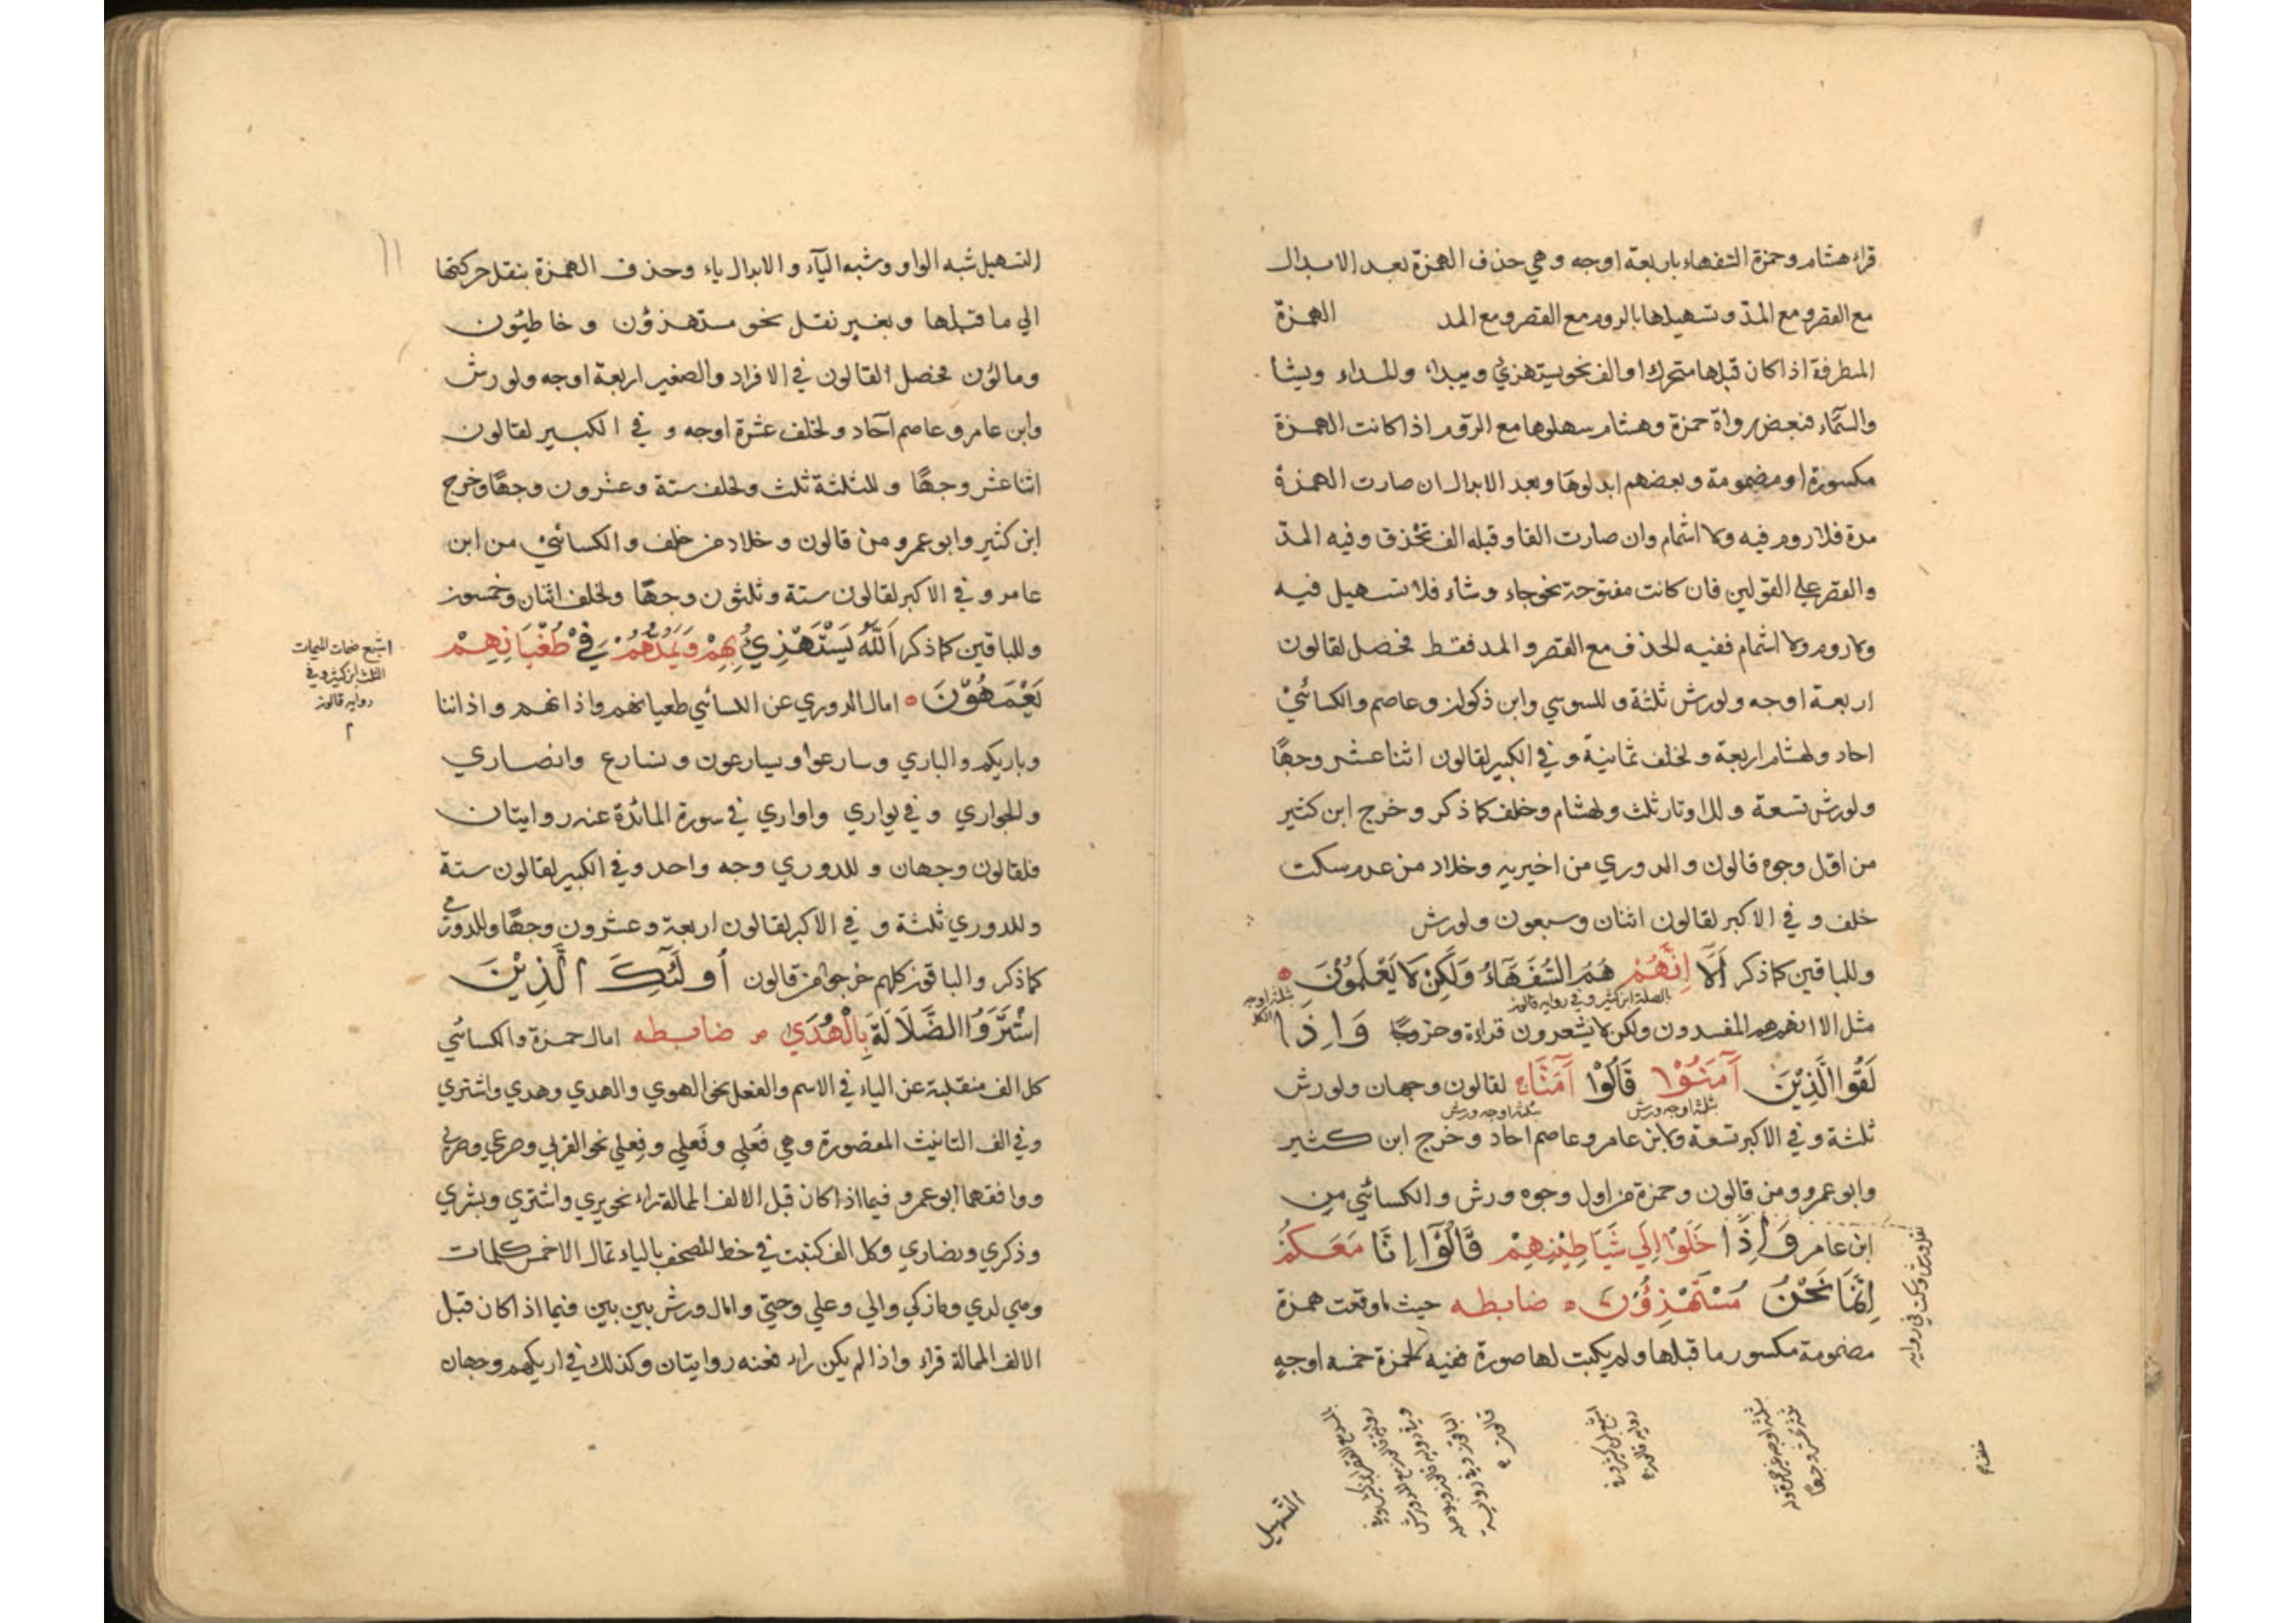 قراء هشام وحمزة السفهاء باربعة اوجه وهي حذف الهمزة بعد الابدال
مع القصر ومع المدّ وتسهيلها بالروم مع القصر ومع المد الهمزة
المطرفة اذا كان قبلها متحرك او الف نحو يستهزئ ويبداء والمداء ويشا
والسّمآء فبعض رواة حمزة وهشام سهلوها مع الرّوم اذا كانت الهمزة
مكسورة او مضمومة وبعضهم ابدلوها وبعد الابدال ان صارت الهمزة
مدة فلا روم فيه ولا اشمام وان صارت الفا وقبله الف تحذف وفيه المدّ
والقصر علي القولين فان كانت مفتوحة نحو جاء وشاء فلا تسهيل فيه
ولا روم ولا اشمام ففيه الحذف مع القصر والمد فقط فحصل لقالون
اربعة اوجه ولورش ثلثة و للسوسي وابن ذكوان وعاصم والكسائيْ
احاد ولهشام اربعة ولخلف ثمانية و في الكبير لقالون اثنا عشر وجهًا
ولورش تسعة و للاوتار ثلث ولهشام وخلف كما ذكر وخرج ابن كثير
من اقل وجوه قالون والدوري من اخيريه وخلاد من عدم سكت
خلف و في الاكبر لقالون اثنان وسبعون ولورش
وللباقين كما ذكر اَلَآ اِنَّهُمْ هُمُ السُّفَهَآءُ وَلَكِنْ لَا يَعْلَمُوْنَ ه
بالصلة ابن كثير وفي رواية قالون
ثلثة اوجه
مثل الا انهم هم المفسدون ولكن لا يشعرون قراءة وخروجًا وَاِذَا
لَقُوا الَّذِيْنَ آمَنُوْا قَالُوْا آمَنَّاه لقالون وجهان ولورش
ثلثة اوجه ورش ثلثة اوجه ورش
ثلثة و في الاكبر تسعة ولابن عامر وعاصم احاد وخرج ابن كثير
وابو عمرو ومن قالون وحمزة من اول وجوه ورش والكسائي من
ابن عامر وَاِذَا خَلَوْا اِلَي شَيَاطِيْنِهِمْ قَالُوْآ اِنَّا مَعَكُمْ
اِنَّمَا نَحْنُ مُسْتَهْزِؤُنَ ه ضابطه حيث ما وقعت همزة
مضمومة مكسور ما قبلها ولم يكتب لها صورة ففيه لحمزة خمسه اوجهٍ
التسهيل
التسهيل شبه الواو وشبه اليآء والابدال ياء وحذف الهمزة بنقل حركتها
الي ما قبلها وبغير نقل نحو مستهزؤن وخاطئون
ومالؤن فحصل لقالون في الافراد والصغير اربعة اوجه ولورش
وابن عامر وعاصم آحاد ولخلف عشرة اوجه و في الكبير لقالون
اثنا عشر وجهًا و للثلثة ثلث ولخلف ستة وعشرون وجهًا وخرج
ابن كثير وابو عمرو من قالون وخلاد من خلف والكسائيْ من ابن
عامر و في الاكبر لقالون ستة وثلثون وجهًا ولخلف اثنان وخمسون
وللباقين كما ذكر اَللّهُ يَسْتَهْزِئُ بِهِمْ وَيَمُدُّهُمْ فِيْ طُغْيَانِهِمْ
يَعْمَهُوْنَ ه امال الدوري عن الكسائي طغيانهم واذانهم واذاننا
وباريكم والباري وسارعوا ويسارعون ونسارع وانصاري
والجواري و في يواري واواري في سورة المائدة عنه روايتان
فلقالون وجهان و للدوري وجه واحد وفي الكبير لقالون ستة
وللدوري ثلثة و في الاكبر لقالون اربعة وعشرون وجهًا وللدوري
كما ذكر والباقون كلهم خرجوا من قالون اُولَئِكَ الَّذِيْنَ
اشْتَرَوُا الضَّلَالَةَ بِالْهُدَي ضابطه امال حمزة والكسائي
كل الف منقلبة عن الياء في الاسم والفعل نحو الهوي والهدي وهدي واشتري
وفي الف التانيث المقصورة وهي فُعلي وفَعلي وفِعلي نحو القربي
ووافقهما ابو عمرو فيما اذا كان قبل الالف الممالة راء نحو يري واشتري وبشري
وذكري ونصاري وكل الف كتبت في خط المصحف بالياء تمال الا خمس كلمات
وهي لدي وما زكي والي وعلي وحتي وامال ورش بين بين فيما اذا كان قبل
الالف الممالة قراء واذا لم يكن راء فعنه روايتان وكذلك في اريكهم وجهان
اشبع ضمات الميمات
الثلث ابن كثير وفي
رواية قالون
١١